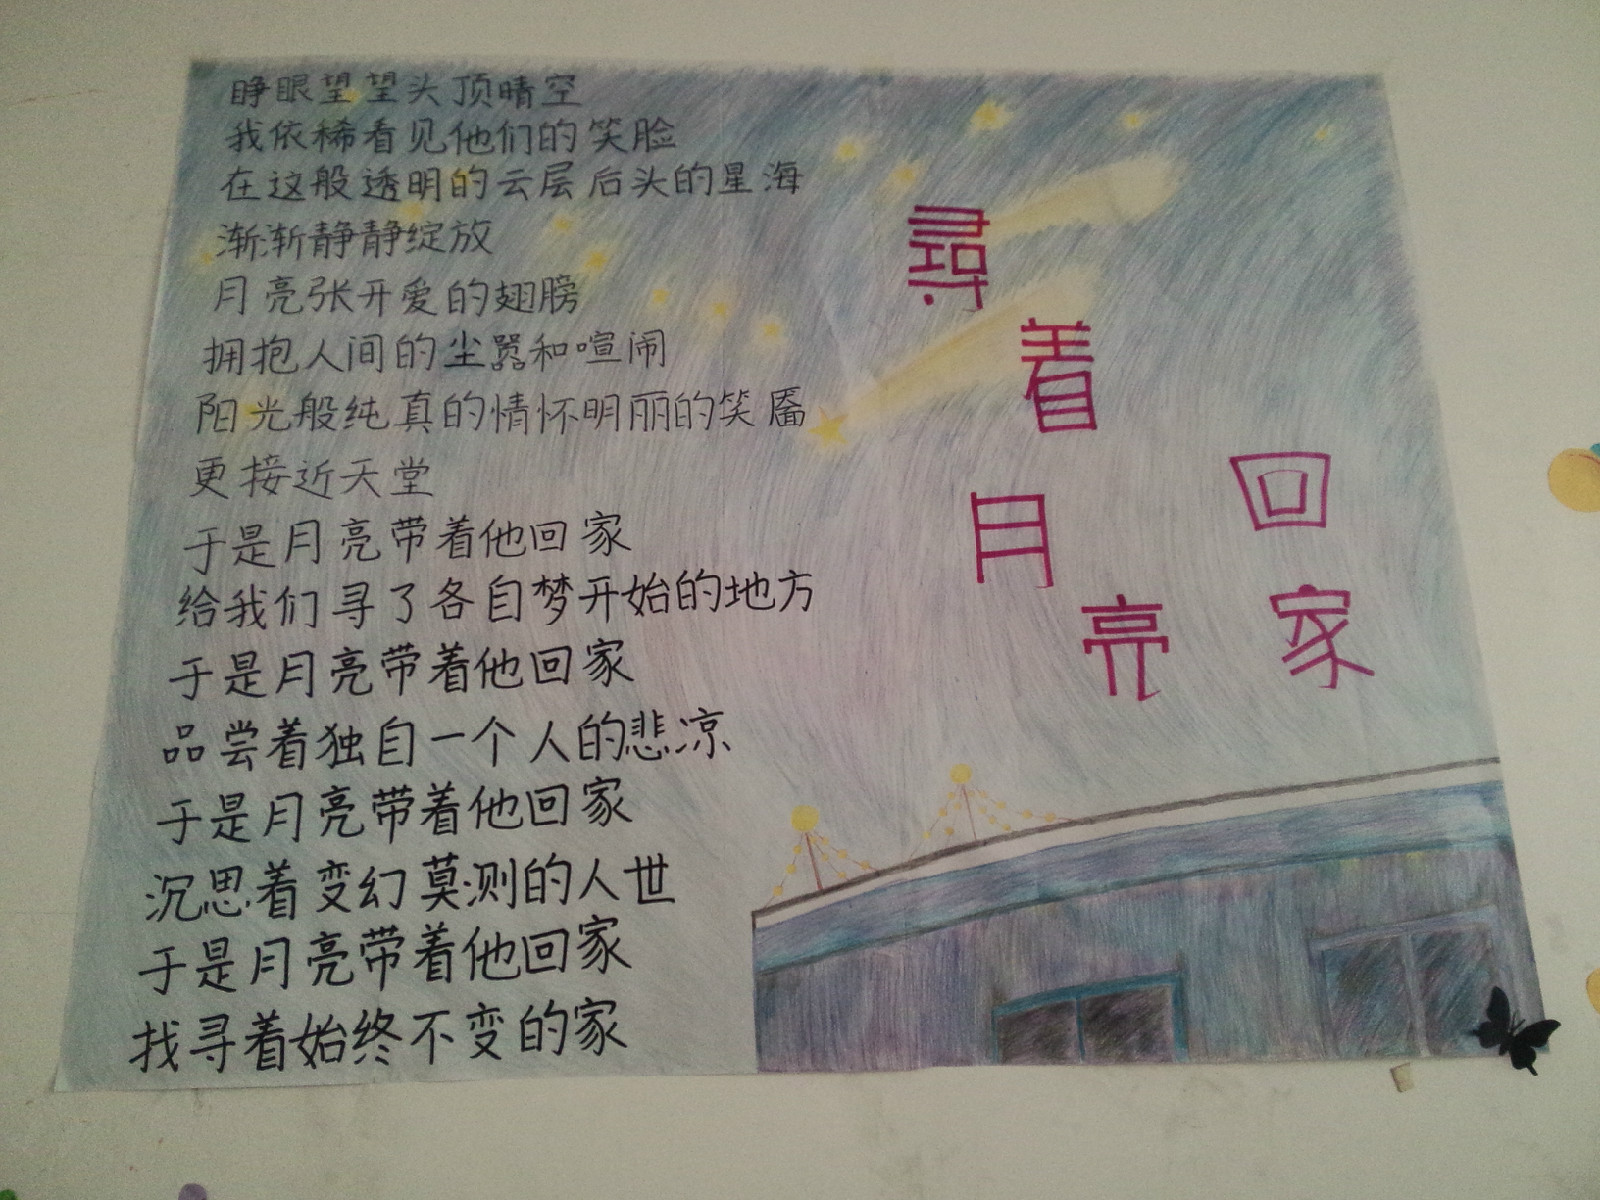 睁眼望望头顶晴空
我依稀看见他们的笑脸
在这般透明的云层后头的星海
渐渐静静绽放
月亮张开爱的翅膀
拥抱人间的尘嚣和喧闹
阳光般纯真的情怀明丽的笑靥
更接近天堂
于是月亮带着他回家
给我们寻了各自梦开始的地方
于是月亮带着他回家
品尝着独自一个人的悲凉
于是月亮带着他回家
沉思着变幻莫测的人世
于是月亮带着他回家
找寻着始终不变的家
尋着
月亮
回家